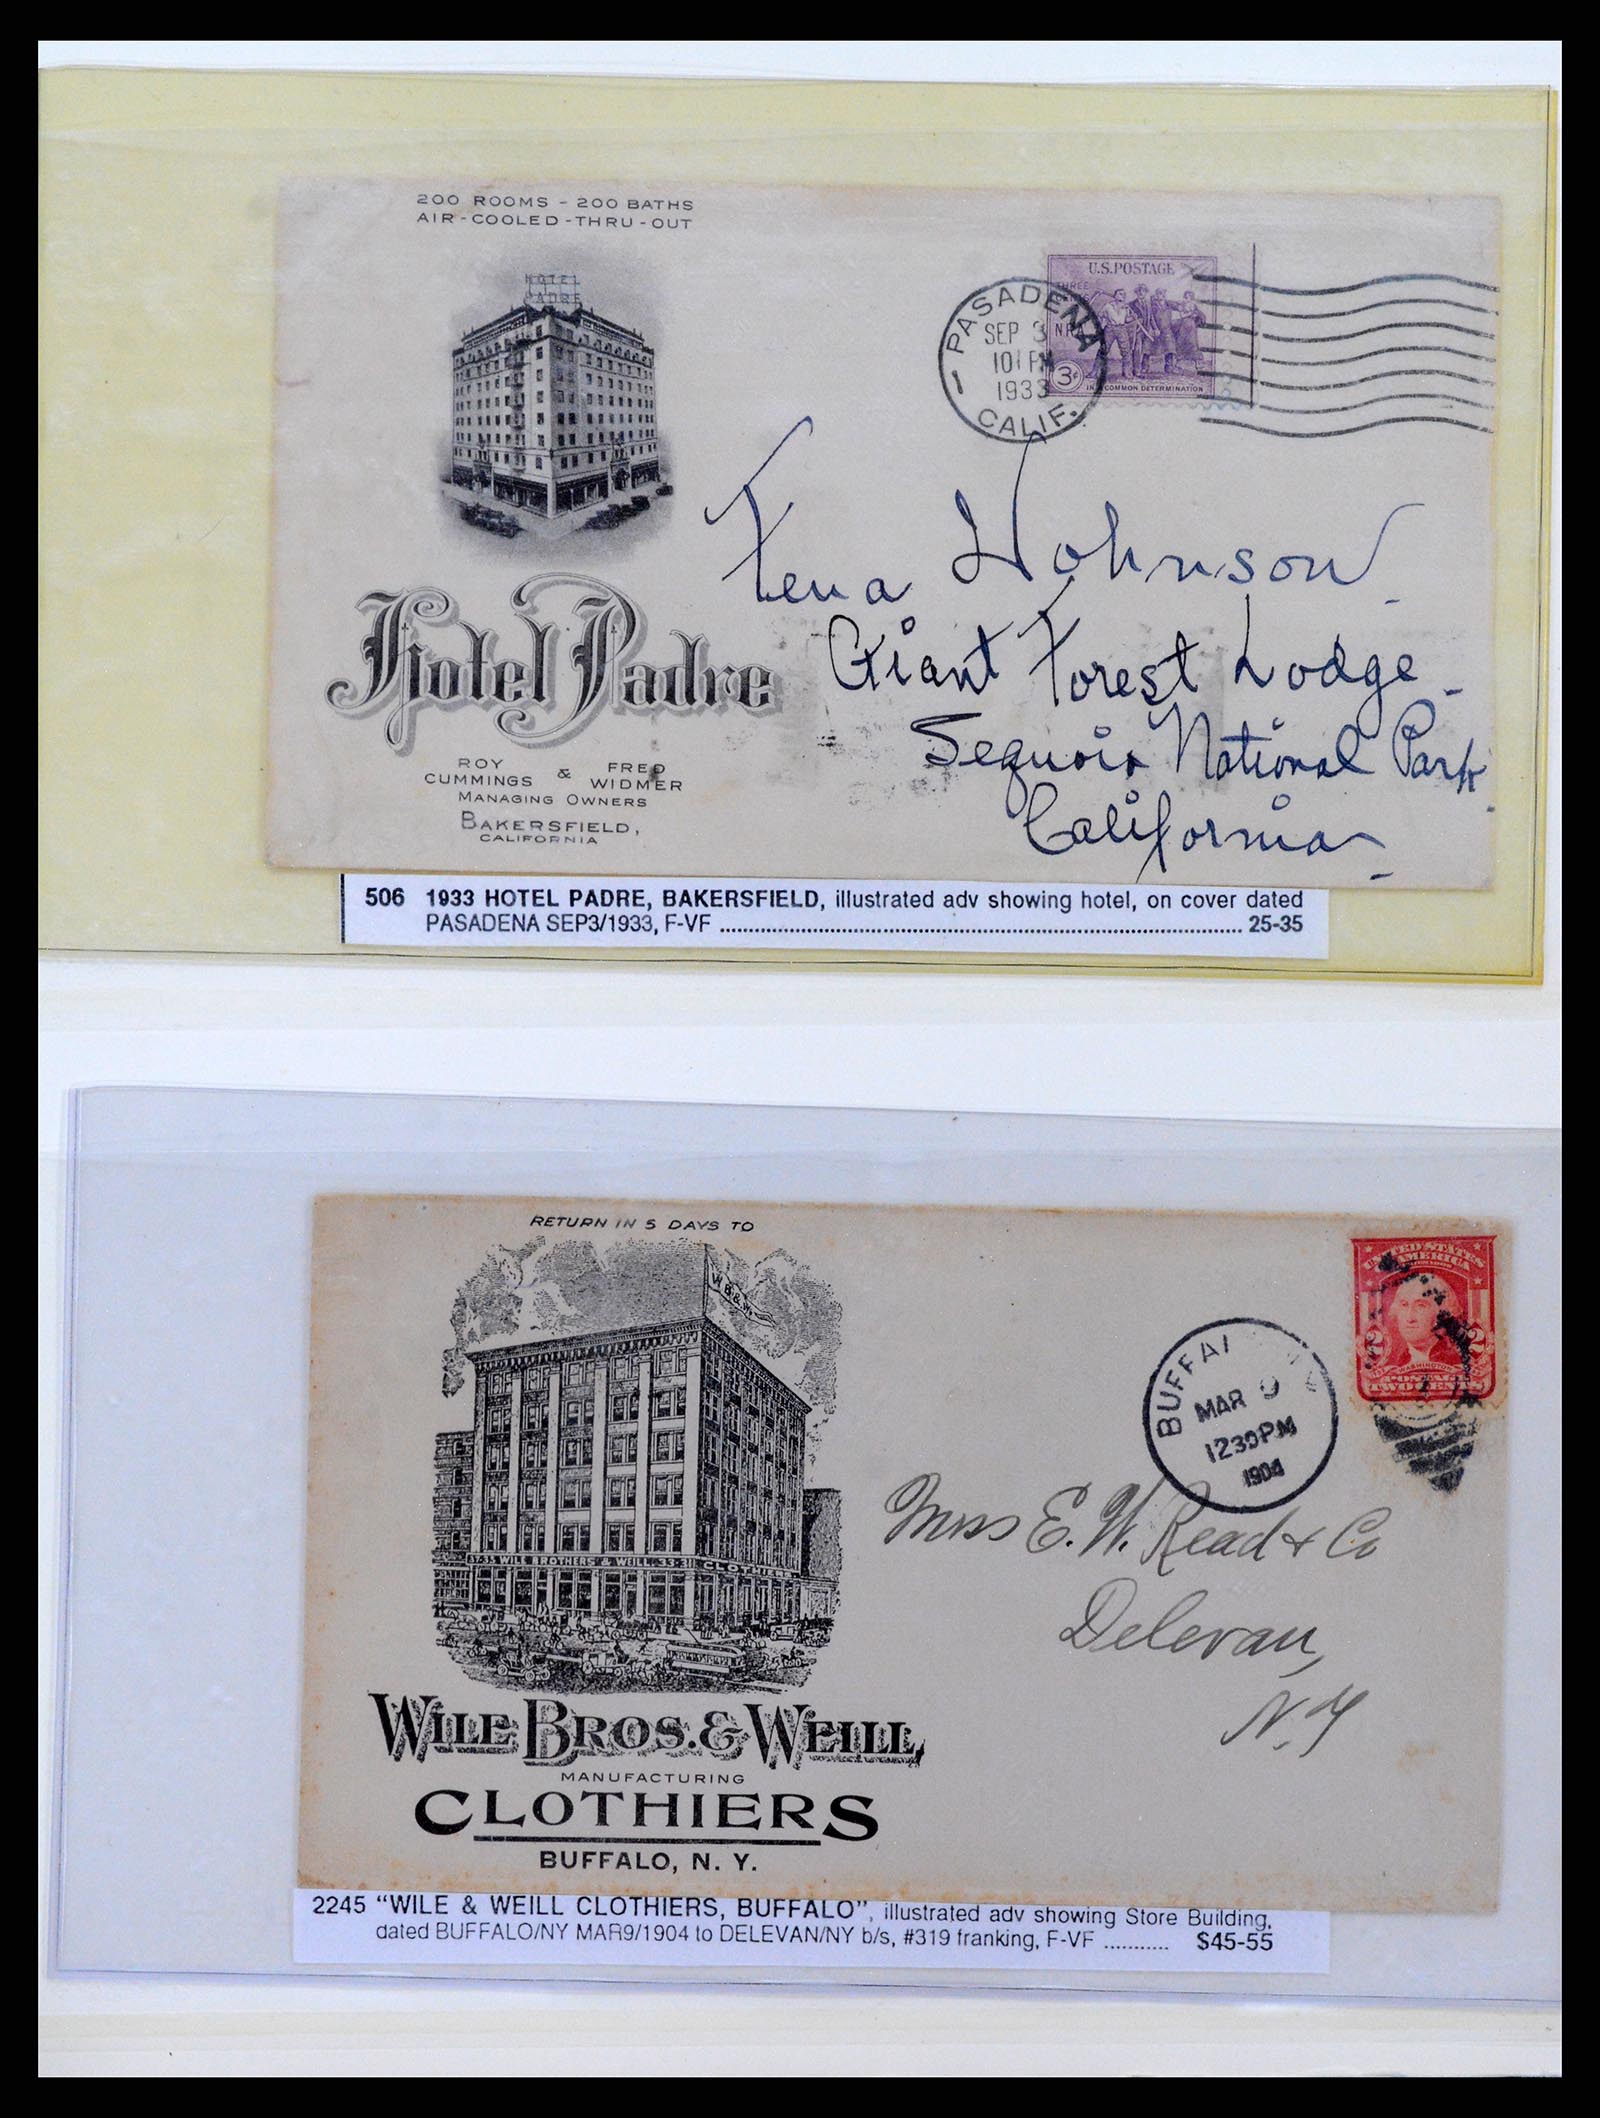 200 ROOMS - 200 BATHS
AIR-COOLED-THRU-OUT
HOTEL
PADRE
Hotel Padre
ROY CUMMINGS & FRED WIDMER
MANAGING OWNERS
BAKERSFIELD,
CALIFORNIA
PASADENA
SEP 3
10 PM
1933
CALIF.
U.S. POSTAGE
THREE
NRA
3¢
IN A COMMON DETERMINATION
Tena Johnson
Giant Forest Lodge
Sequoia National Park
California
506 1933 HOTEL PADRE, BAKERSFIELD, illustrated adv showing hotel, on cover dated
PASADENA SEP3/1933, F-VF ........ 25-35
RETURN IN 5 DAYS TO
W.B.&W.
37-35 WILE BROTHERS & WEILL 33-31 CLOTHIERS
WILE BROS. & WEILL,
MANUFACTURING
CLOTHIERS
BUFFALO, N. Y.
BUFFAL
MAR 9
1230PM
1904
UNITED STATES
OF AMERICA
2 2
WASHINGTON
POSTAGE
TWO CENTS
Mess E. W. Read & Co
Delevan,
N.Y
2245 "WILE & WEILL CLOTHIERS, BUFFALO", illustrated adv showing Store Building,
dated BUFFALO/NY MAR9/1904 to DELEVAN/NY b/s, #319 franking, F-VF ........... $45-55